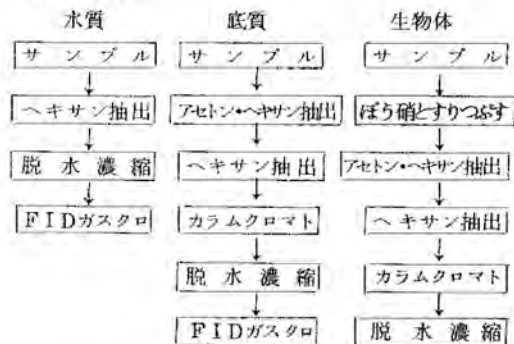 水質
サンプル
ヘキサン抽出
脱水濃縮
FIDガスクロ
底質
サンプル
アセトン・ヘキサン抽出
ヘキサン抽出
カラムクロマト
脱水濃縮
FIDガスクロ
生物体
サンプル
ぼう硝とすりつぶす
アセトン・ヘキサン抽出
ヘキサン抽出
カラムクロマト
脱水濃縮